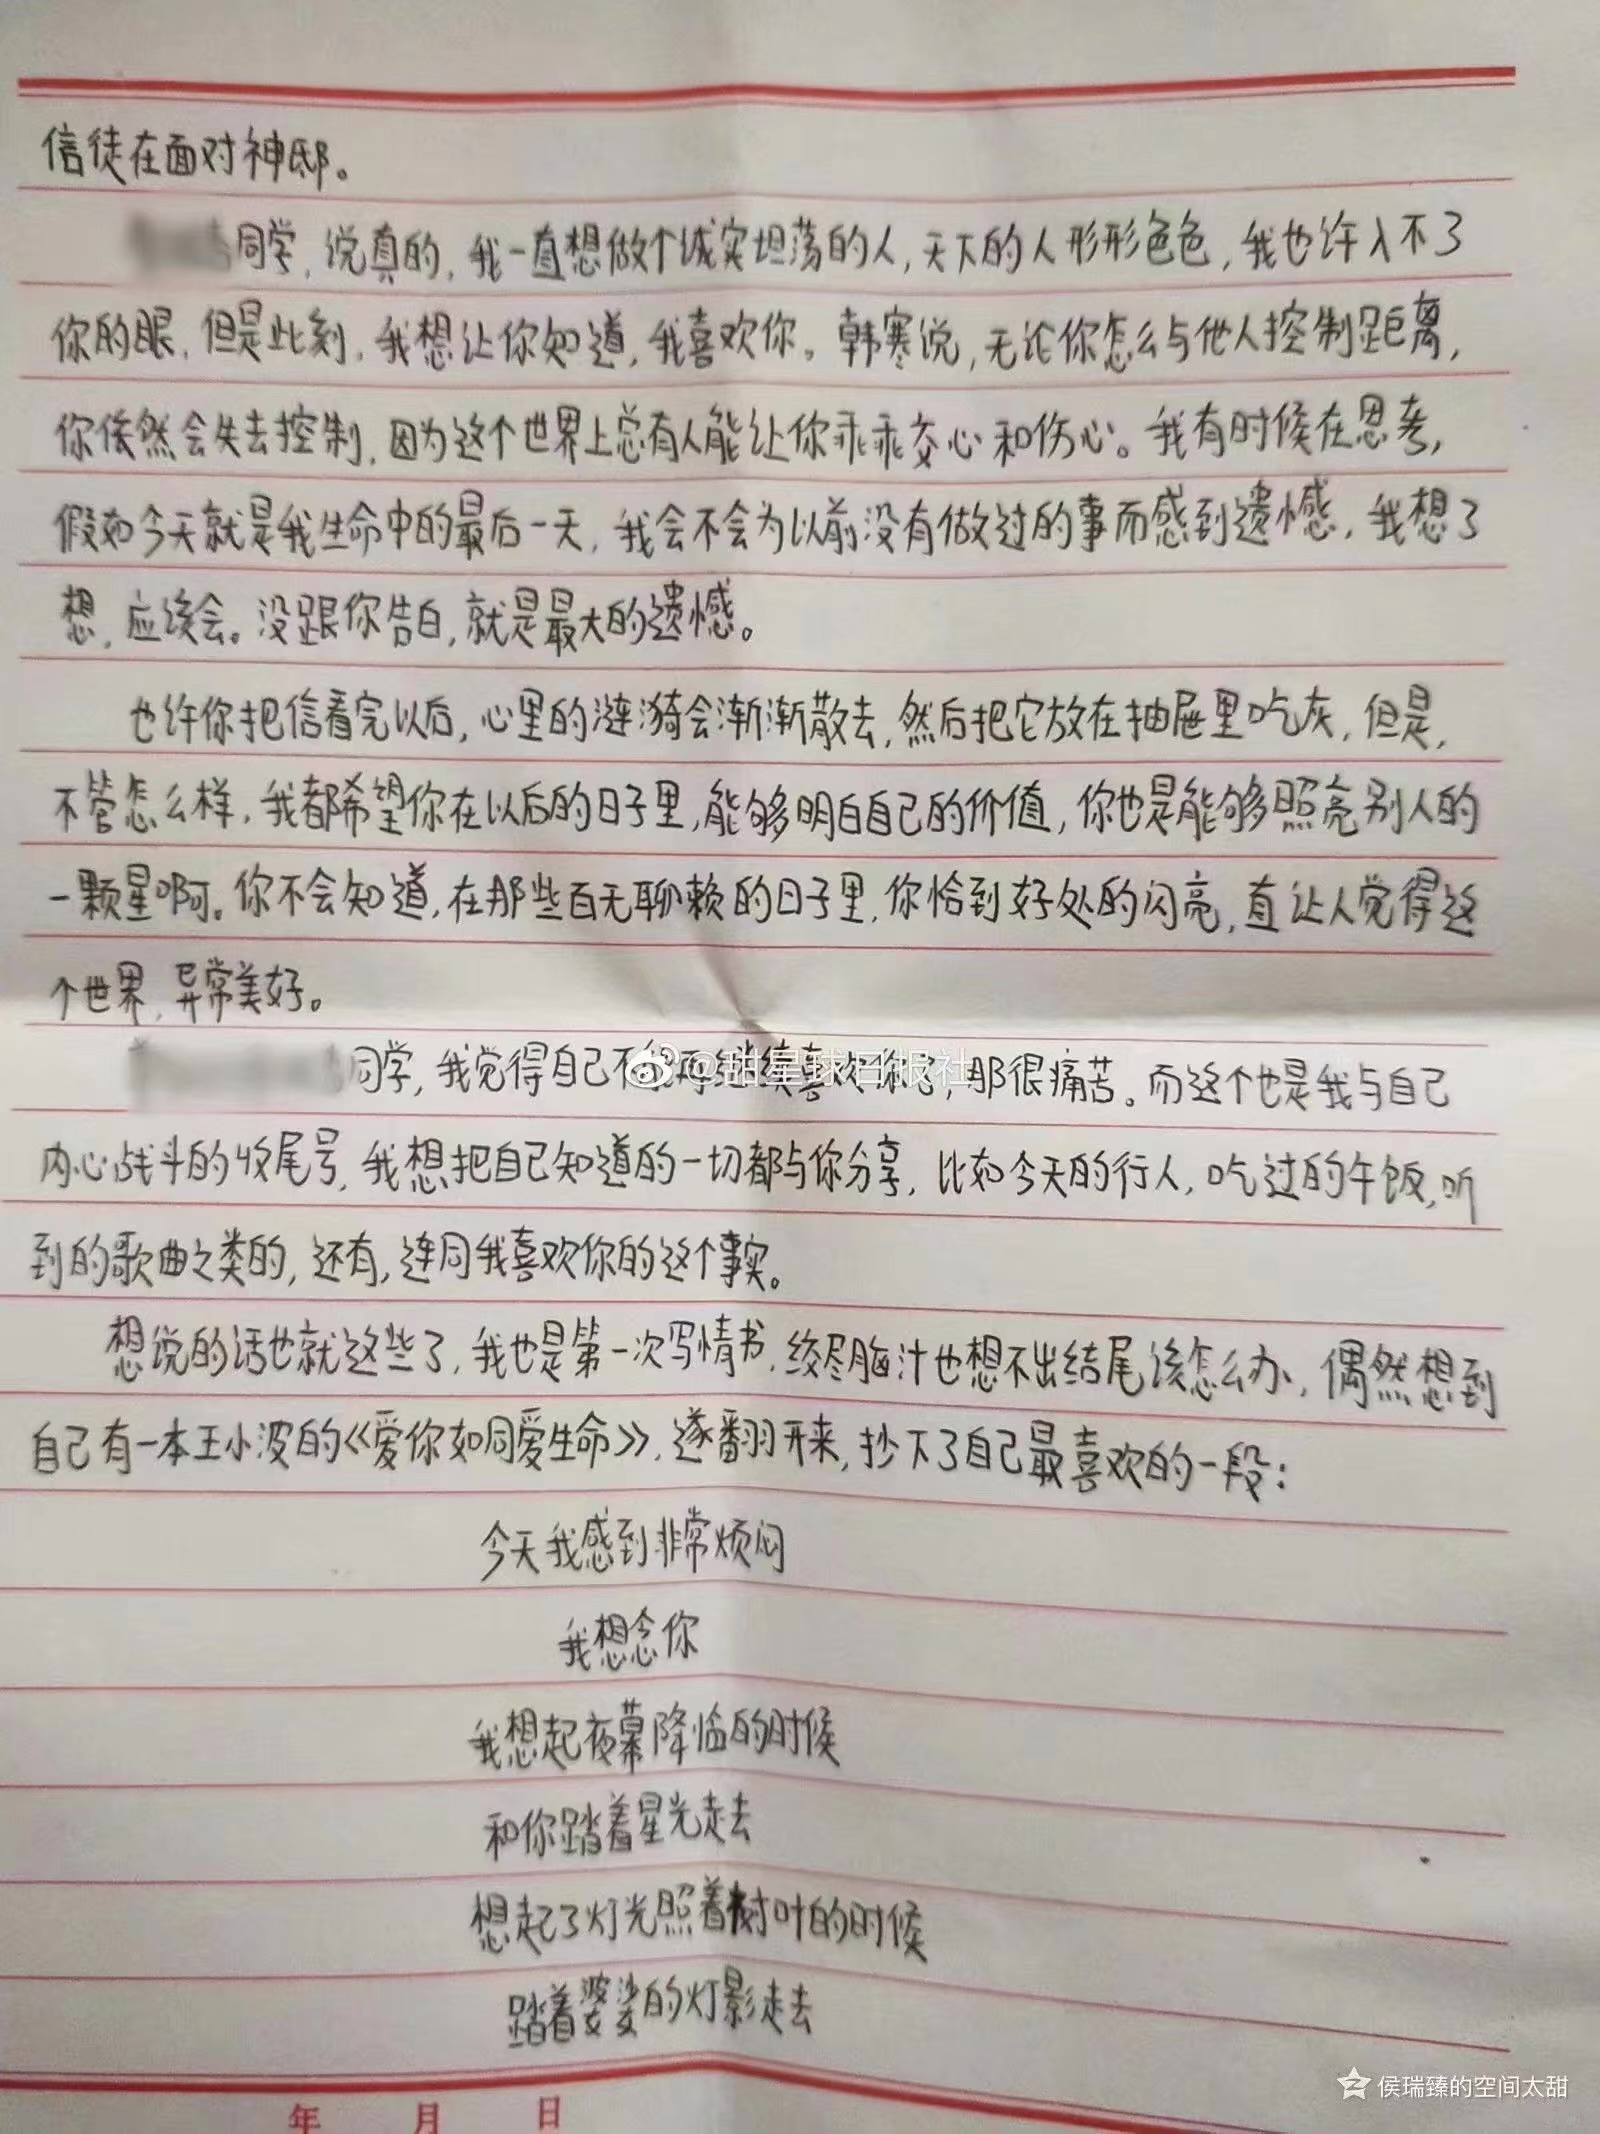 信徒在面对神邸。
同学,说真的,我一直想做个诚实坦荡的人,天下的人形形色色,我也许入不了
你的眼,但是此刻,我想让你知道,我喜欢你。韩寒说,无论你怎么与他人控制距离,
你依然会失去控制,因为这个世界上总有人能让你乖乖交心和伤心。我有时候在思考,
假如今天就是我生命中的最后一天,我会不会为以前没有做过的事而感到遗憾,我想了
想,应该会。没跟你告白,就是最大的遗憾。
也许你把信看完以后,心里的涟漪会渐渐散去,然后把它放在抽屉里吃灰,但是,
不管怎么样,我都希望你在以后的日子里,能够明白自己的价值,你也是能够照亮别人的
一颗星啊。你不会知道,在那些百无聊赖的日子里,你恰到好处的闪亮,直让人觉得这
个世界,异常美好。
同学,我觉得自己不能再继续喜欢你了,那很痛苦。而这个也是我与自己
@甜星球日报社
内心战斗的收尾号,我想把自己知道的一切都与你分享,比如今天的行人,吃过的午饭,听
到的歌曲之类的,还有,连同我喜欢你的这个事实。
想说的话也就这些了,我也是第一次写情书,绞尽脑汁也想不出结尾该怎么办,偶然想到
自己有一本王小波的《爱你如同爱生命》,遂翻开来,抄下了自己最喜欢的一段:
今天我感到非常烦闷
我想念你
我想起夜幕降临的时候
和你踏着星光走去
想起了灯光照着树叶的时候
踏着婆娑的灯影走去
年 月 日
侯瑞臻的空间太甜